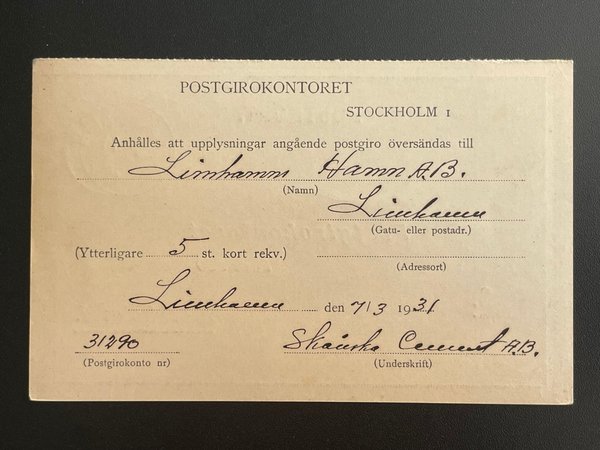 POSTGIROKONTORET
STOCKHOLM 1
Anhålles att upplysningar angående postgiro översändas till
Limhamns Hamn A.B.
(Namn)
Limhamn
(Gatu- eller postadr.)
(Ytterligare 5 st. kort rekv.)
(Adressort)
Limhamn den 7/3 1931
31290 Skånska Cement A.B.
(Postgirokonto nr) (Underskrift)